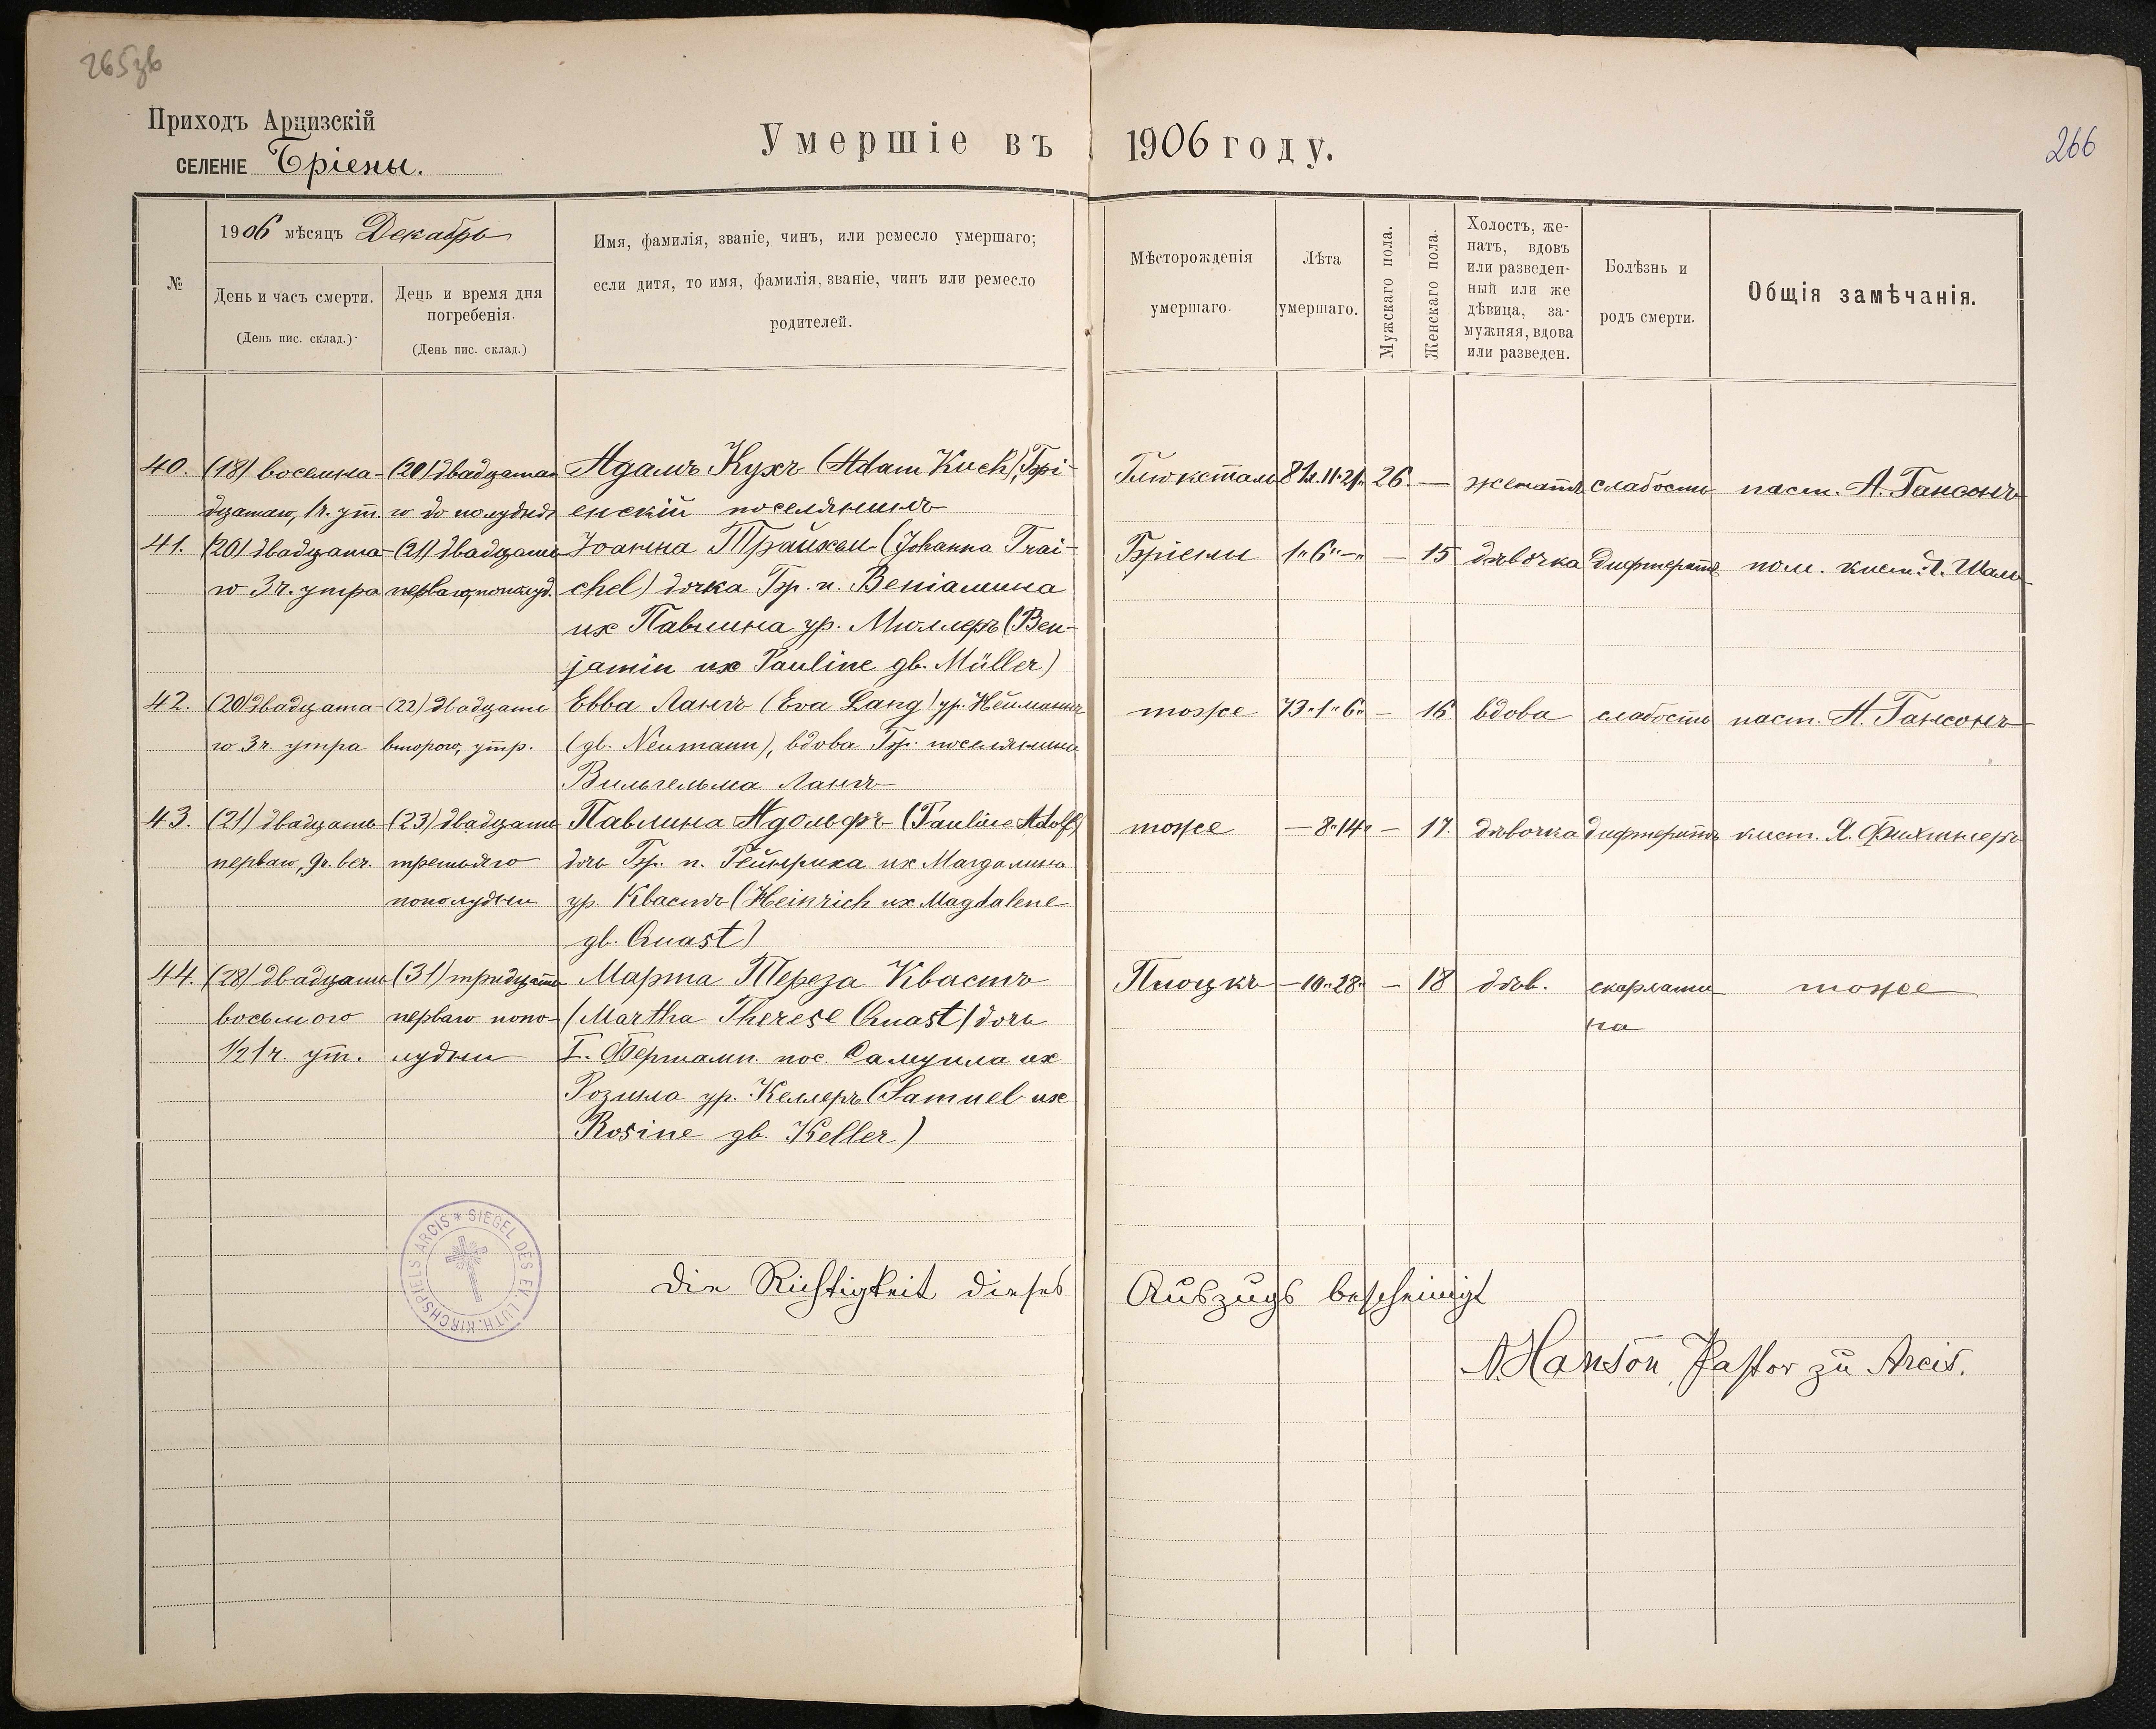 265зв
Приходъ Арцизскій
селеніе Бріены.
Умершіе въ 1906 году.
266
№
1906 мѣсяцъ Декабрь
День и часъ смерти.
(День пис. склад.)
День и время дня
погребенія.
(День пис. склад.)
Имя, фамилія, званіе, чинъ, или ремесло умершаго;
если дитя, то имя, фамилія, званіе, чинъ или ремесло
родителей.
Мѣсторожденія
умершаго.
Лѣта
умершаго.
Мужскаго пола.
Женскаго пола.
Холостъ, же-
натъ, вдовъ
или разведен-
ный или же
дѣвица, за-
мужняя, вдова
или разведен.
Болѣзнь и
родъ смерти.
Общія замѣчанія.
40. (18) восемна- (20) двадцатаг Адамъ Кухъ (Adam Kuch), Брі- Глюкстали 81л.11.21. 26. — женатъ слабости паст. А. Гансонъ
дцатаго, 1ч. ут. о до полудня енскій поселянинъ
41. (20) двадцата- (21) двадцать Іоанна Трайхел (Johanna Trai- Бріены 1"6"—" — 15 дѣвочка дифтеритъ пом. кист. Я. Шал
го 3ч. утра перваго, пополуд. chel) дочка Бр. п. Веніамина
их Павлина ур. Мюллеръ (Ben-
jamin ux Pauline gb. Müller)
42. (20) двадцата- (22) двадцать Евва Лангъ (Eva Lang) ур. Нейманнъ тоже 73"1"6" — 16 вдова слабость паст. А. Гансонъ
го 3ч. утра второго, утр. (gb. Neumann), вдова Бр. поселянина
Вильгельма Лангъ
43. (21) двадцать (23) двадцать Павлина Адольфъ (Pauline Adolf) тоже —8"14" — 17. дѣвочка дифтеритъ кист. Я. Фихтнеръ
перваго, 9ч. веч. третьяго дочь Бр. п. Гейнриха их Магдалина
пополудни ур. Квастъ (Heinrich ux Magdalene
gb. Quast)
44. (28) двадцать (31) тридцать Марта Тереза Квастъ Плоцкъ —10"28" — 18 дѣв. скарлати- тоже
восьмого перваго попо- (Martha Therese Quast) дочь на
1/2 1ч. ут. лудни I. Фершамп. пос. Самуила их
Розина ур. Келлеръ (Samuel ux
Rosine gb. Keller)
SIEGEL DES EV. LUTH. KIRCHSPELS ARCIS *
Die Richtigkeit dieses Auszugs bescheinigt
A. Hanson, Pastor zu Arcis.